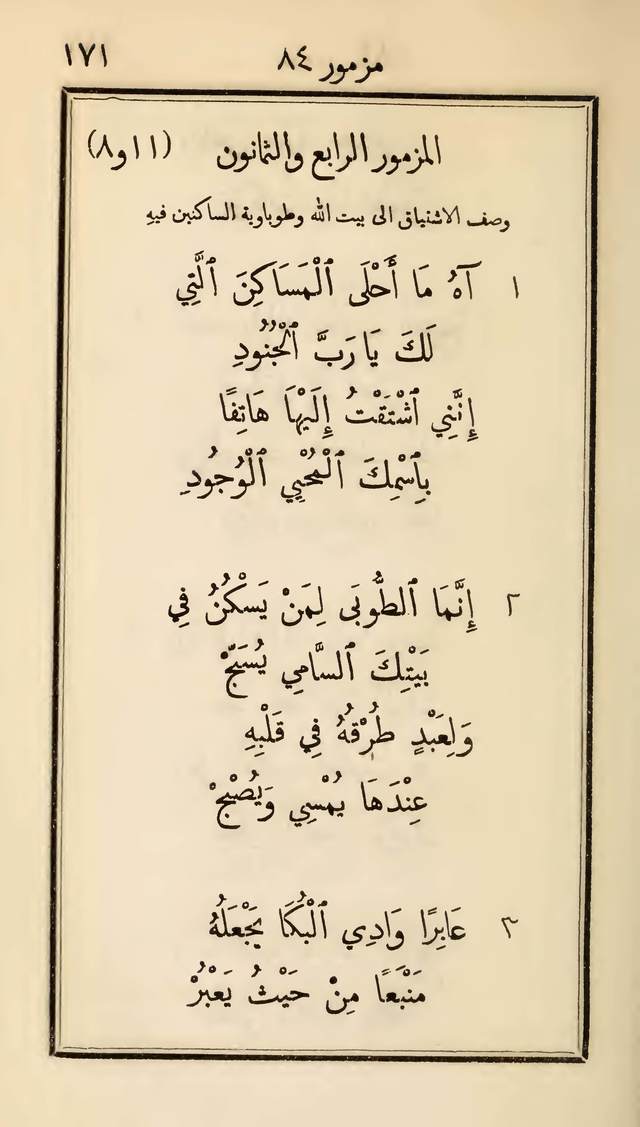 مزمور ٨٤ ١٧١
المزمور الرابع والثمانون (١١و٨)
وصف الاشتياق الى بيت الله وطوباوية الساكنين فيهِ
١ آهُ مَا أَحْلَى ٱلْمَسَاكِنَ ٱلَّتِي
لَكَ يَا رَبَّ ٱلْجُنُودِ
إِنَّنِي ٱشْتَقْتُ إِلَيْهَا هَاتِفًا
بِٱسْمِكَ ٱلْمُحْيِي ٱلْوُجُودِ
٢ إِنَّمَا ٱلطُّوبَى لِمَنْ يَسْكُنُ فِي
بَيْتِكَ ٱلسَّامِي يُسَبِّحْ
وَلِعَبْدٍ طُرْقُهُ فِي قَلْبِهِ
عِنْدَهَا يُمْسِي وَيُصْبِحْ
٣ عَابِرًا وَادِي ٱلْبُكَا يَجْعَلُهُ
مَنْبَعًا مِنْ حَيْثُ يَعْبُرْ